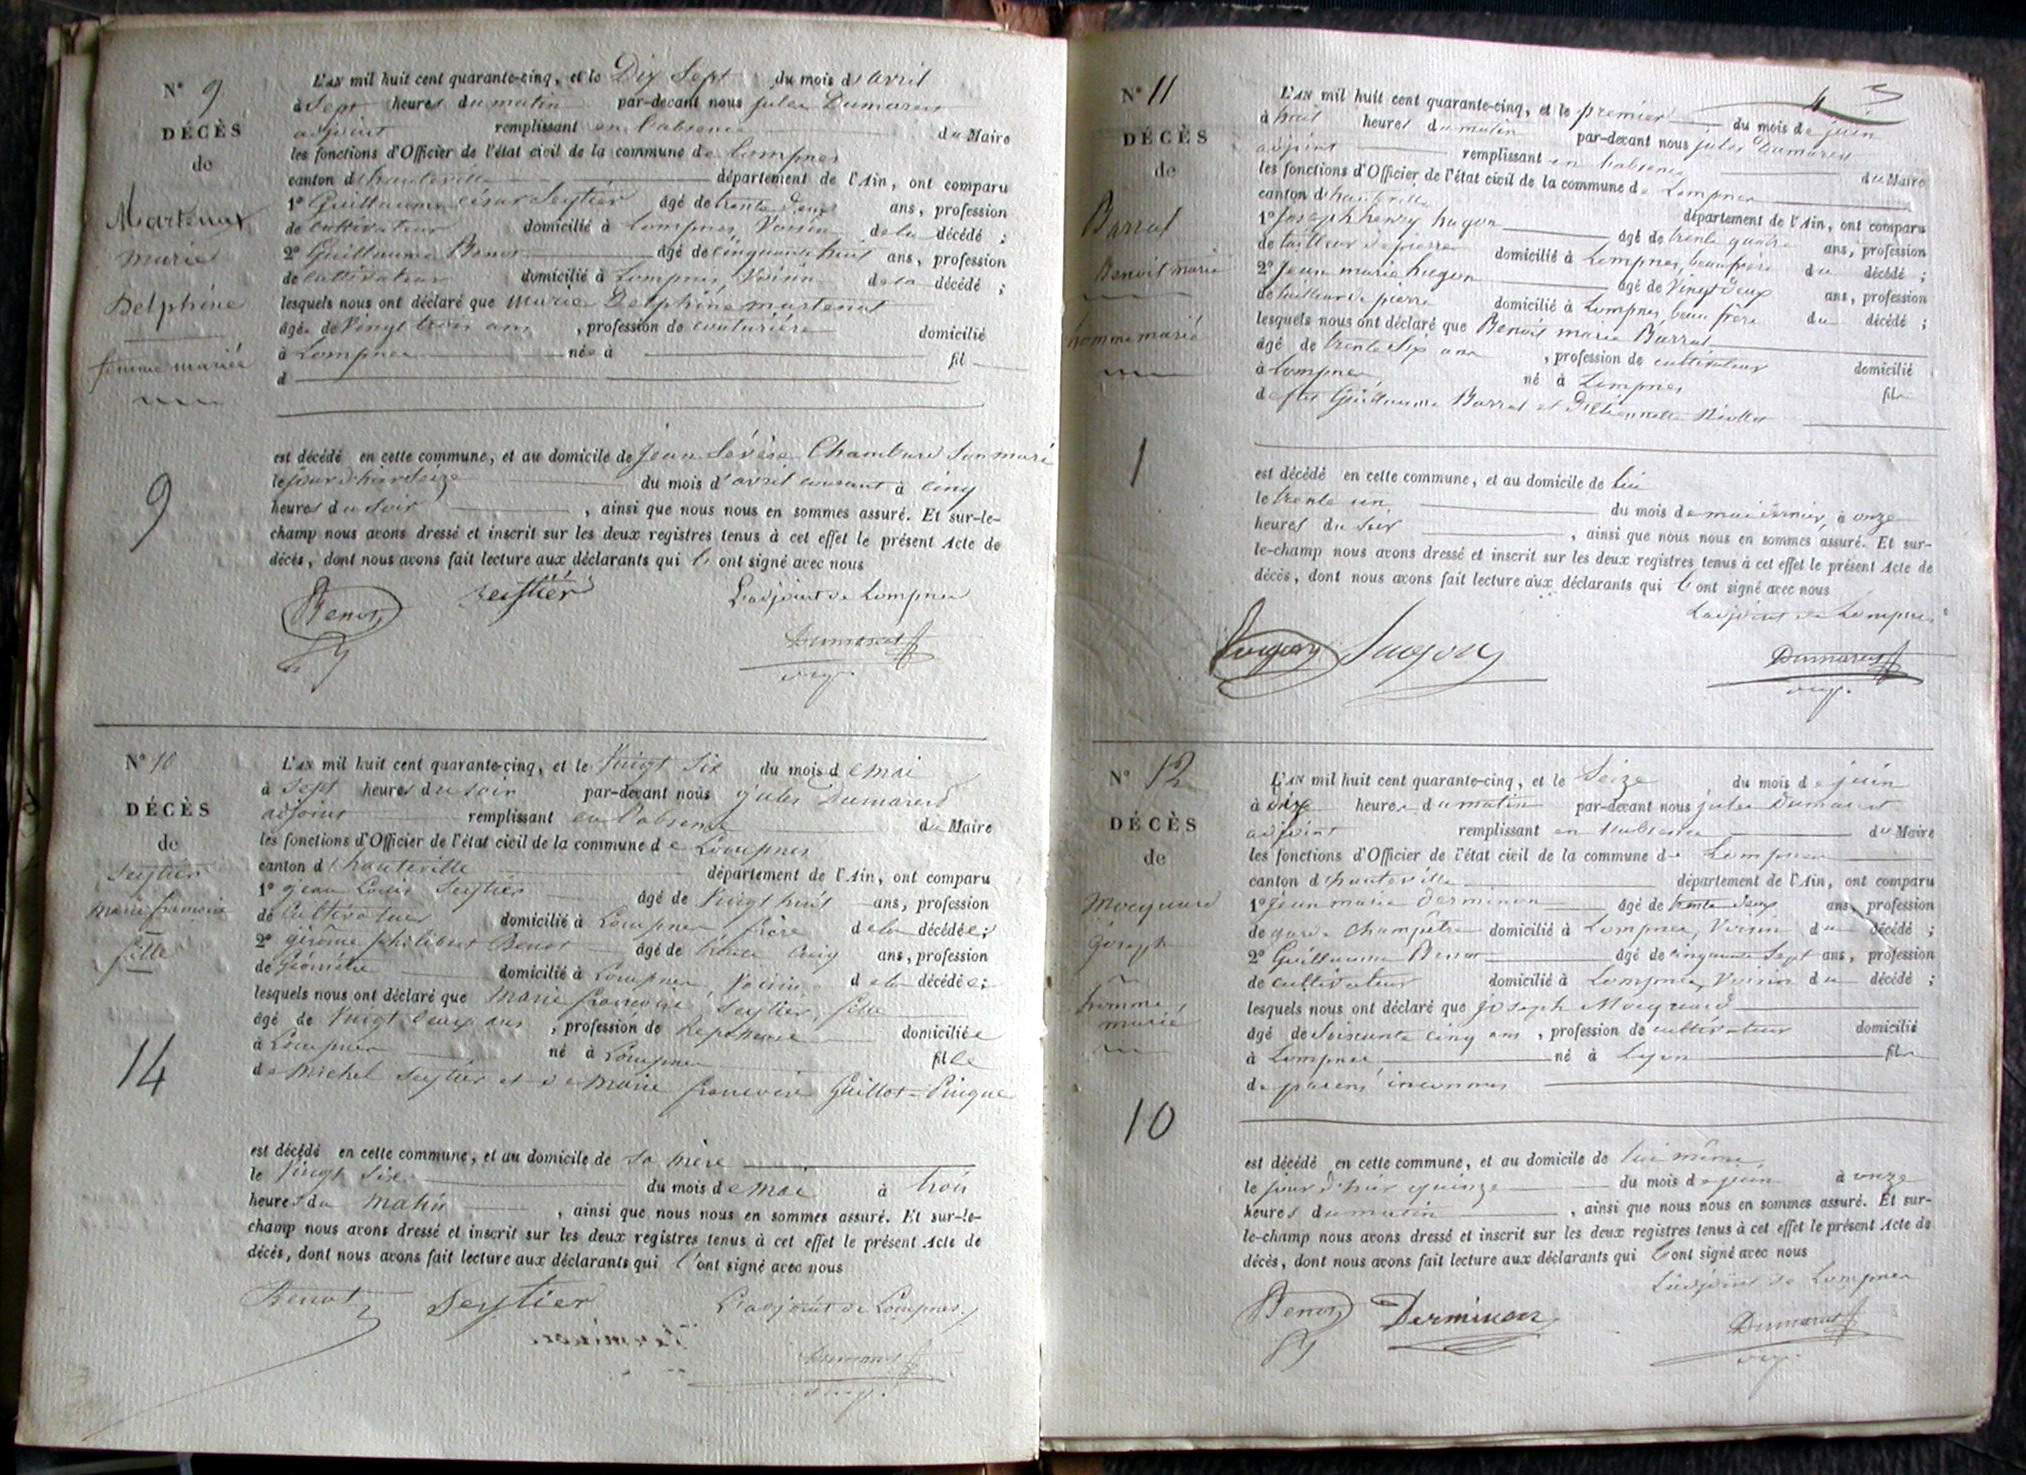 N° 9
DÉCÈS
de
Martenat
Marie
Delphine
femme mariée
9
L'AN mil huit cent quarante-cinq, et le Dix Sept du mois d'avril
à Sept heures du matin par-devant nous jules Dumarest
adjoint remplissant en l'absence du Maire
les fonctions d'Officier de l'état civil de la commune de Lompnes
canton d'hauteville département de l'Ain, ont comparu
1° Guillaume césar Seytier âgé de trente deux ans, profession
de cultivateur domicilié à Lompnes, Voisin de la décédé ;
2° Guillaume Benot âgé de cinquante huit ans, profession
de cultivateur domicilié à Lompnes, Voisin de la décédé ;
lesquels nous ont déclaré que Marie Delphine martenat
âgée de Vingt trois ans , profession de couturière domicilié
à Lompnes née à fil
d
est décédé en cette commune, et au domicile de Jean Chambard Son mari
le jour d'hier Seize du mois d'avril courant à cinq
heures du soir , ainsi que nous nous en sommes assuré. Et sur-le-
champ nous avons dressé et inscrit sur les deux registres tenus à cet effet le présent Acte de
décès, dont nous avons fait lecture aux déclarants qui l'ont signé avec nous
Benot Seytier L'adjoint de Lompnes
Dumarest
N° 10
DÉCÈS
de
Seytier
Marie françoise
fille
14
L'AN mil huit cent quarante-cinq, et le Vingt Six du mois de mai
à Sept heures du soir par-devant nous jules Dumarest
adjoint remplissant en l'absence du Maire
les fonctions d'Officier de l'état civil de la commune de Lompnes
canton d'hauteville département de l'Ain, ont comparu
1° jean Louis Seytier âgé de Vingt huit ans, profession
de Cultivateur domicilié à Lompnes frère de la décédée ;
2° gérôme philibert Benot âgé de trente Cinq ans, profession
de Géomètre domicilié à Lompnes Voisin de la décédée ;
lesquels nous ont déclaré que Marie françoise Seytier, fille
âgé de Vingt deux ans , profession de Repasseuse domiciliée
à Lompnes né à Lompnes fille
de Michel Seytier et de Marie françoise Guillot-Pingue
est décédé en cette commune, et au domicile de sa mère
le Vingt Six du mois de mai à trois
heures du matin , ainsi que nous nous en sommes assuré. Et sur-le-
champ nous avons dressé et inscrit sur les deux registres tenus à cet effet le présent Acte de
décès, dont nous avons fait lecture aux déclarants qui l'ont signé avec nous
Benot Seytier L'adjoint de Lompnes
Dumarest
N° 11
DÉCÈS
de
Barrat
Benoit marie
homme marié
1
L'AN mil huit cent quarante-cinq, et le premier du mois de juin
à huit heures du matin par-devant nous jules Dumarest
adjoint remplissant en l'absence du Maire
les fonctions d'Officier de l'état civil de la commune de Lompnes
canton d'hauteville département de l'Ain, ont comparu
1° Joseph henry hugon âgé de trente quatre ans, profession
de tailleur de pierre domicilié à Lompnes, beau frère du décédé ;
2° Jean marie hugon âgé de Vingt deux ans, profession
de tailleur de pierre domicilié à Lompnes, beau frère du décédé ;
lesquels nous ont déclaré que Benoit marie Barrat
âgé de trente Six ans , profession de cultivateur domicilié
à Lompnes né à Lompnes fils
de feu Guillaume Barrat et d'Etiennette
est décédé en cette commune, et au domicile de lui
le trente un du mois de mai dernier, à onze
heures du soir , ainsi que nous nous en sommes assuré. Et sur-
le-champ nous avons dressé et inscrit sur les deux registres tenus à cet effet le présent Acte de
décès, dont nous avons fait lecture aux déclarants qui l'ont signé avec nous
L'adjoint de Lompnes
hugon hugon Dumarest
N° 12
DÉCÈS
de
Mocquard
joseph
homme
marié
10
L'AN mil huit cent quarante-cinq, et le Seize du mois de juin
à dix heures du matin par-devant nous jules Dumarest
adjoint remplissant en l'absence du Maire
les fonctions d'Officier de l'état civil de la commune de Lompnes
canton d'hauteville département de l'Ain, ont comparu
1° jean marie Derminon âgé de trente deux ans, profession
de garde Champêtre domicilié à Lompnes, Voisin du décédé ;
2° Guillaume Benot âgé de cinquante Sept ans, profession
de cultivateur domicilié à Lompnes, Voisin du décédé ;
lesquels nous ont déclaré que joseph Mocquard
âgé de Soixante cinq ans , profession de cultivateur domicilié
à Lompnes né à Lyon fils
de parens inconnus
est décédé en cette commune, et au domicile de lui même
le jour d'hier quinze du mois de juin à onze
heures du matin , ainsi que nous nous en sommes assuré. Et sur-
le-champ nous avons dressé et inscrit sur les deux registres tenus à cet effet le présent Acte de
décès, dont nous avons fait lecture aux déclarants qui l'ont signé avec nous
L'adjoint de Lompnes
Benot Derminon Dumarest